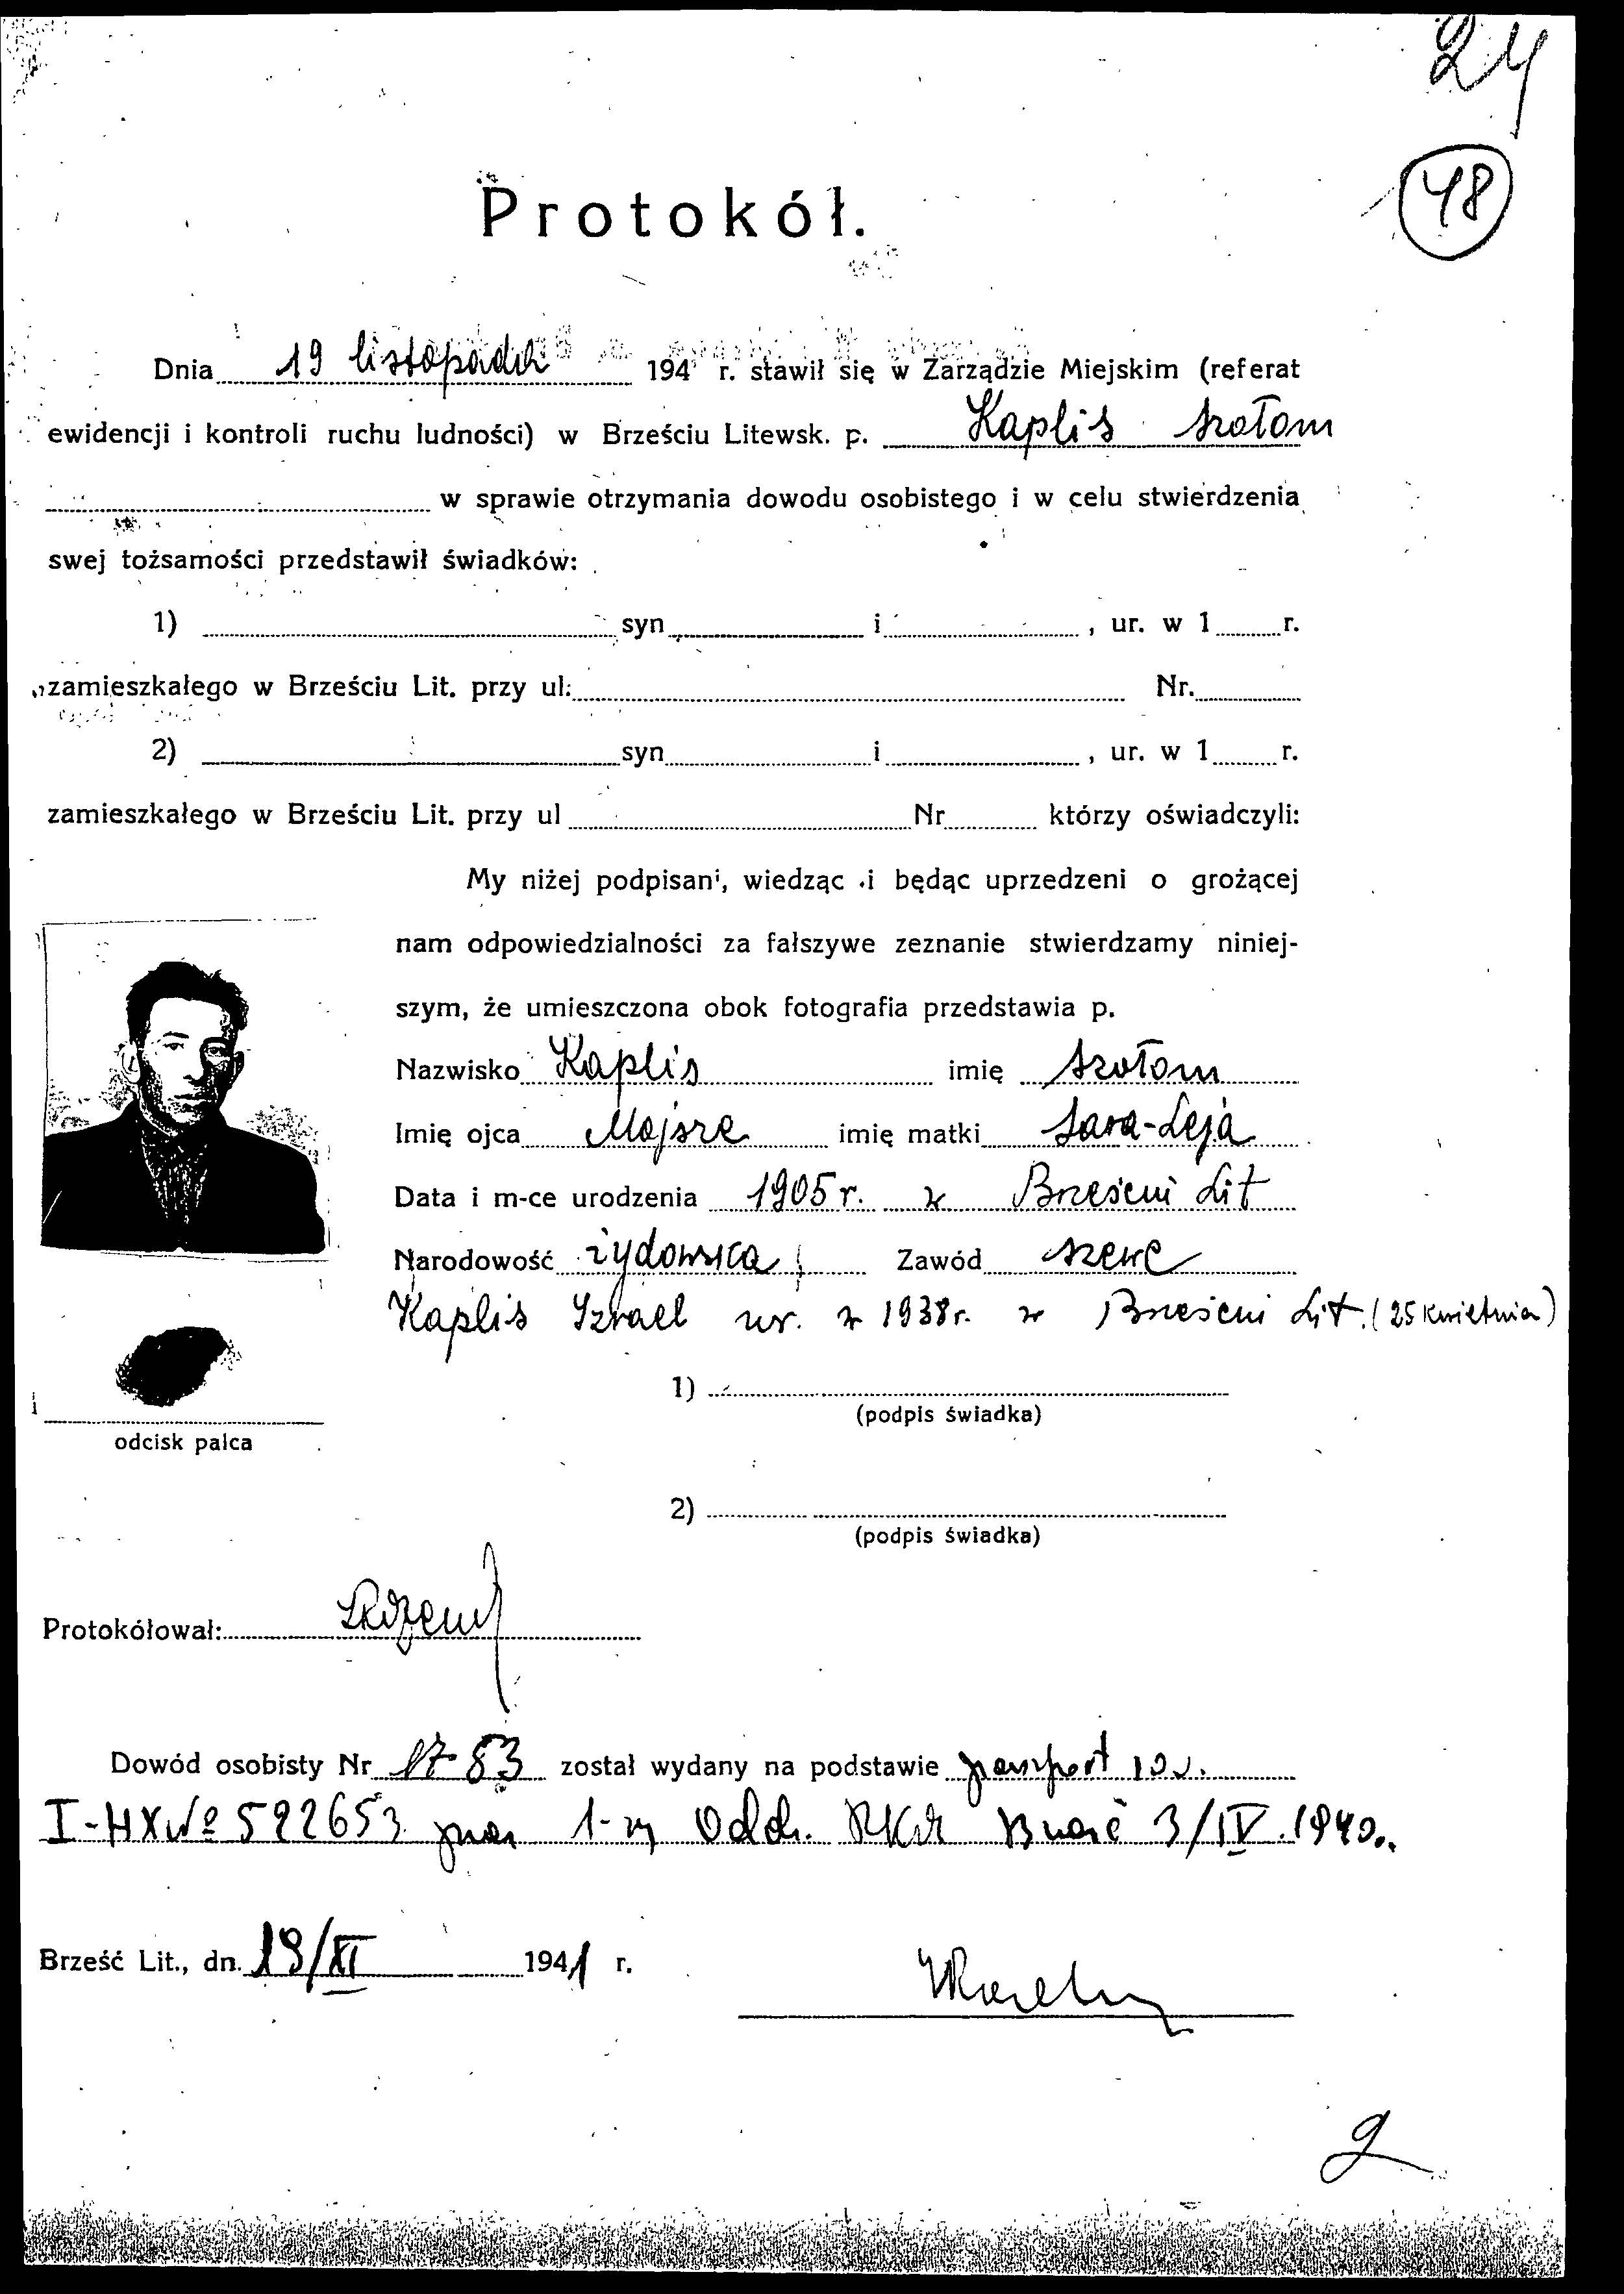 24
48
Protokół.
Dnia 19 listopada 194 r. stawił się w Zarządzie Miejskim (referat
ewidencji i kontroli ruchu ludności) w Brześciu Litewsk. p. Kaplis Szołom
w sprawie otrzymania dowodu osobistego i w celu stwierdzenia
swej tożsamości przedstawił świadków:
1) syn i , ur. w 1 r.
zamieszkałego w Brześciu Lit. przy ul. Nr.
2) syn i , ur. w 1 r.
zamieszkałego w Brześciu Lit. przy ul Nr którzy oświadczyli:
My niżej podpisani, wiedząc i będąc uprzedzeni o grożącej
nam odpowiedzialności za fałszywe zeznanie stwierdzamy niniej-
szym, że umieszczona obok fotografia przedstawia p.
Nazwisko Kaplis imię Szołom
Imię ojca Mojsze imię matki Sara-Leja
Data i m-ce urodzenia 1905 r. w Brześciu Lit
Narodowość żydowska Zawód szewc
Kaplis Izrael ur. w 1938 r. w Brześciu Lit. (25 kwietnia)
1)
(podpis świadka)
odcisk palca
2)
(podpis świadka)
Protokółował:
Dowód osobisty Nr 1783 został wydany na podstawie passport
I-HX № 592653 przez 1-ny Oddz. Brześć 3/IV.1940.
Brześć Lit., dn. 19/XI 1941 r.